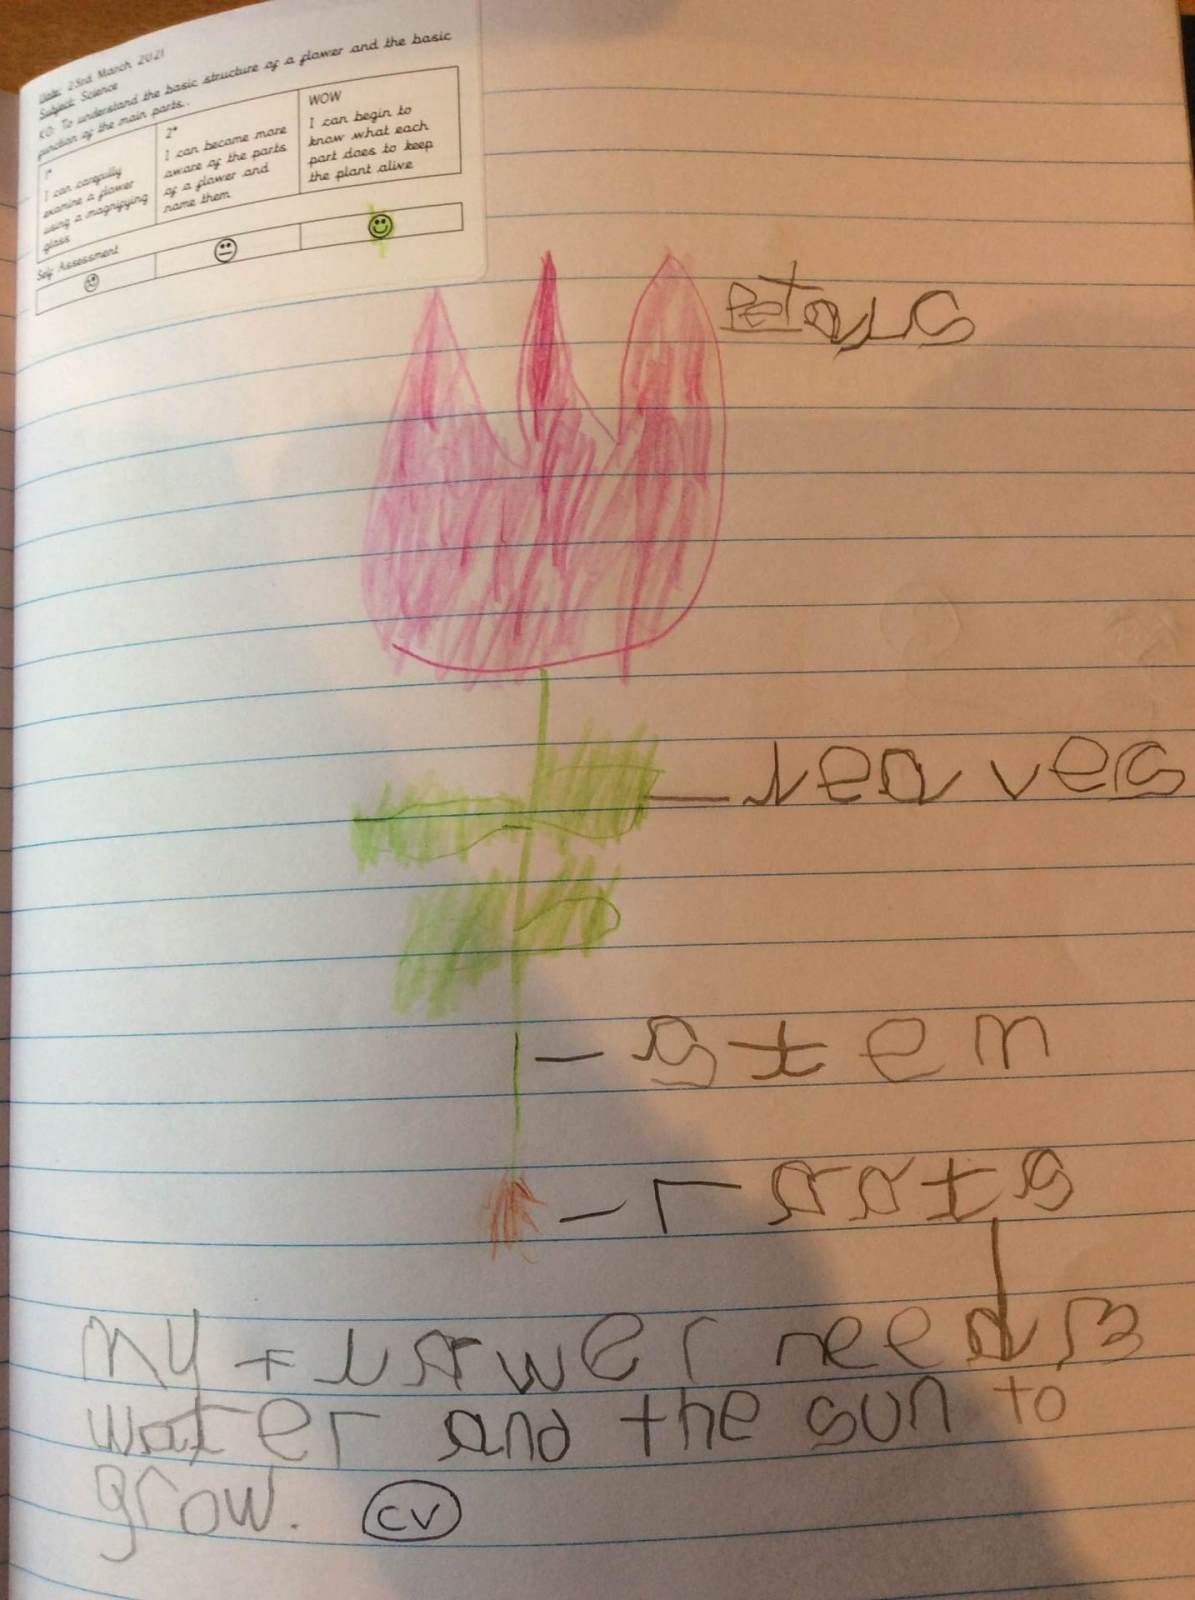 Date: 23rd March 2021
Subject: Science
KO: To understand the basic structure of a flower and the basic
function of the main parts.
1*
I can carefully
examine a flower
using a magnifying
glass
2*
I can become more
aware of the parts
of a flower and
name them
WOW
I can begin to
know what each
part does to keep
the plant alive
Self Assessment
Petals
leaves
stem
roots
my flower needs
water and the sun to
grow.
CV